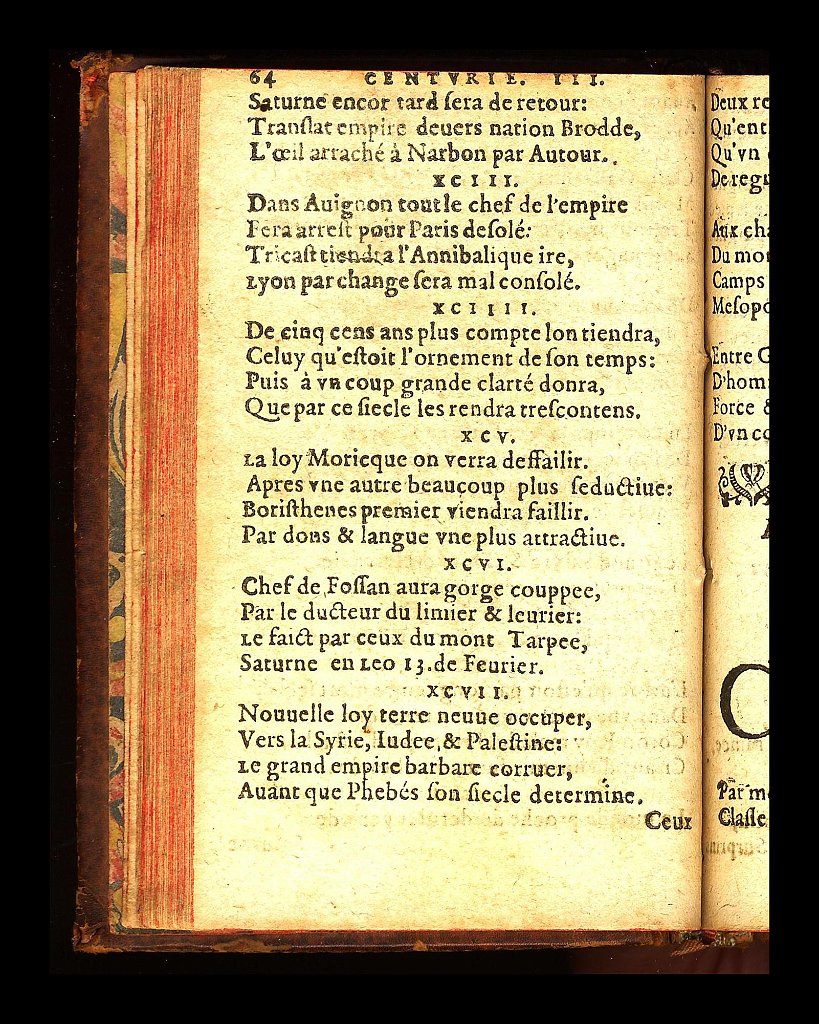 64 CENTVRIE. III.
Saturne encor tard ſera de retour:
Tranſlat empire deuers nation Brodde,
L'œil arraché à Narbon par Autour.
XCIII.
Dans Auignon tout le chef de l'empire
Fera arreſt pour Paris deſolé:
Tricaſt tiendra l'Annibalique ire,
Lyon par change ſera mal conſolé.
XCIIII.
De cinq cens ans plus compte lon tiendra,
Celuy qu'eſtoit l'ornement de ſon temps:
Puis à vn coup grande clarté donra,
Que par ce ſiecle les rendra treſcontens.
XCV.
La loy Moricque on verra deffailir.
Apres vne autre beaucoup plus ſeductiue:
Boriſthenes premier viendra faillir.
Par dons & langue vne plus attractiue.
XCVI.
Chef de Foſſan aura gorge couppee,
Par le ducteur du limier & leurier:
Le faict par ceux du mont Tarpee,
Saturne en Leo 13. de Feurier.
XCVII.
Nouuelle loy terre neuue occuper,
Vers la Syrie, Iudee, & Paleſtine:
Le grand empire barbare corruer,
Auant que Phebés ſon ſiecle determine.
Ceux
Deux
Qu'ent
Qu'vn
De regn
Aux cha
Du mon
Camps
Meſopo
Entre G
D'hom
Force &
D'vn co
Par m
Claſſe